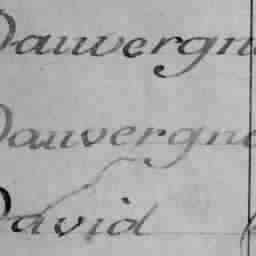 Dauvergne
Dauvergne
David